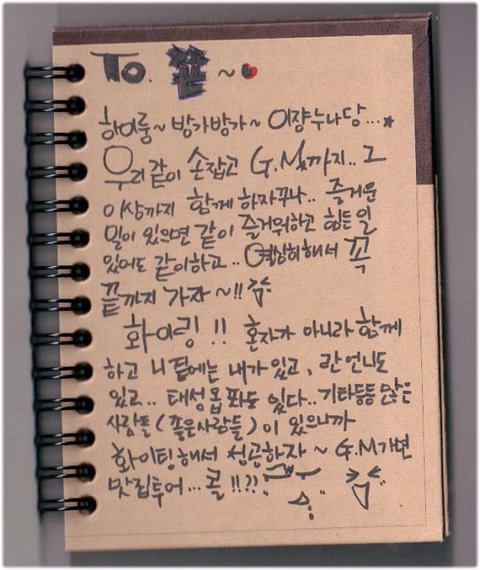 To. 끝 ~
하이룽~ 방가방가~ 이쟝누나당...
우리같이 손잡고 G.M까지.. 그
이상까지 함께 하자꾸나.. 즐거운
일이 있으면 같이 즐거워하고 힘든일
있어도 같이하고.. 열심히해서 꼭
끝까지 가자~!!
화이링!! 혼자가 아니라 함께
하고 니 곁에는 내가 있고, 란 언니도
있고.. 태성옵파도 있다.. 기타등등 많은
사람들(좋은사람들)이 있으니까
화이팅해서 성공하자~ G.M가면
맛집투어... 콜!!??